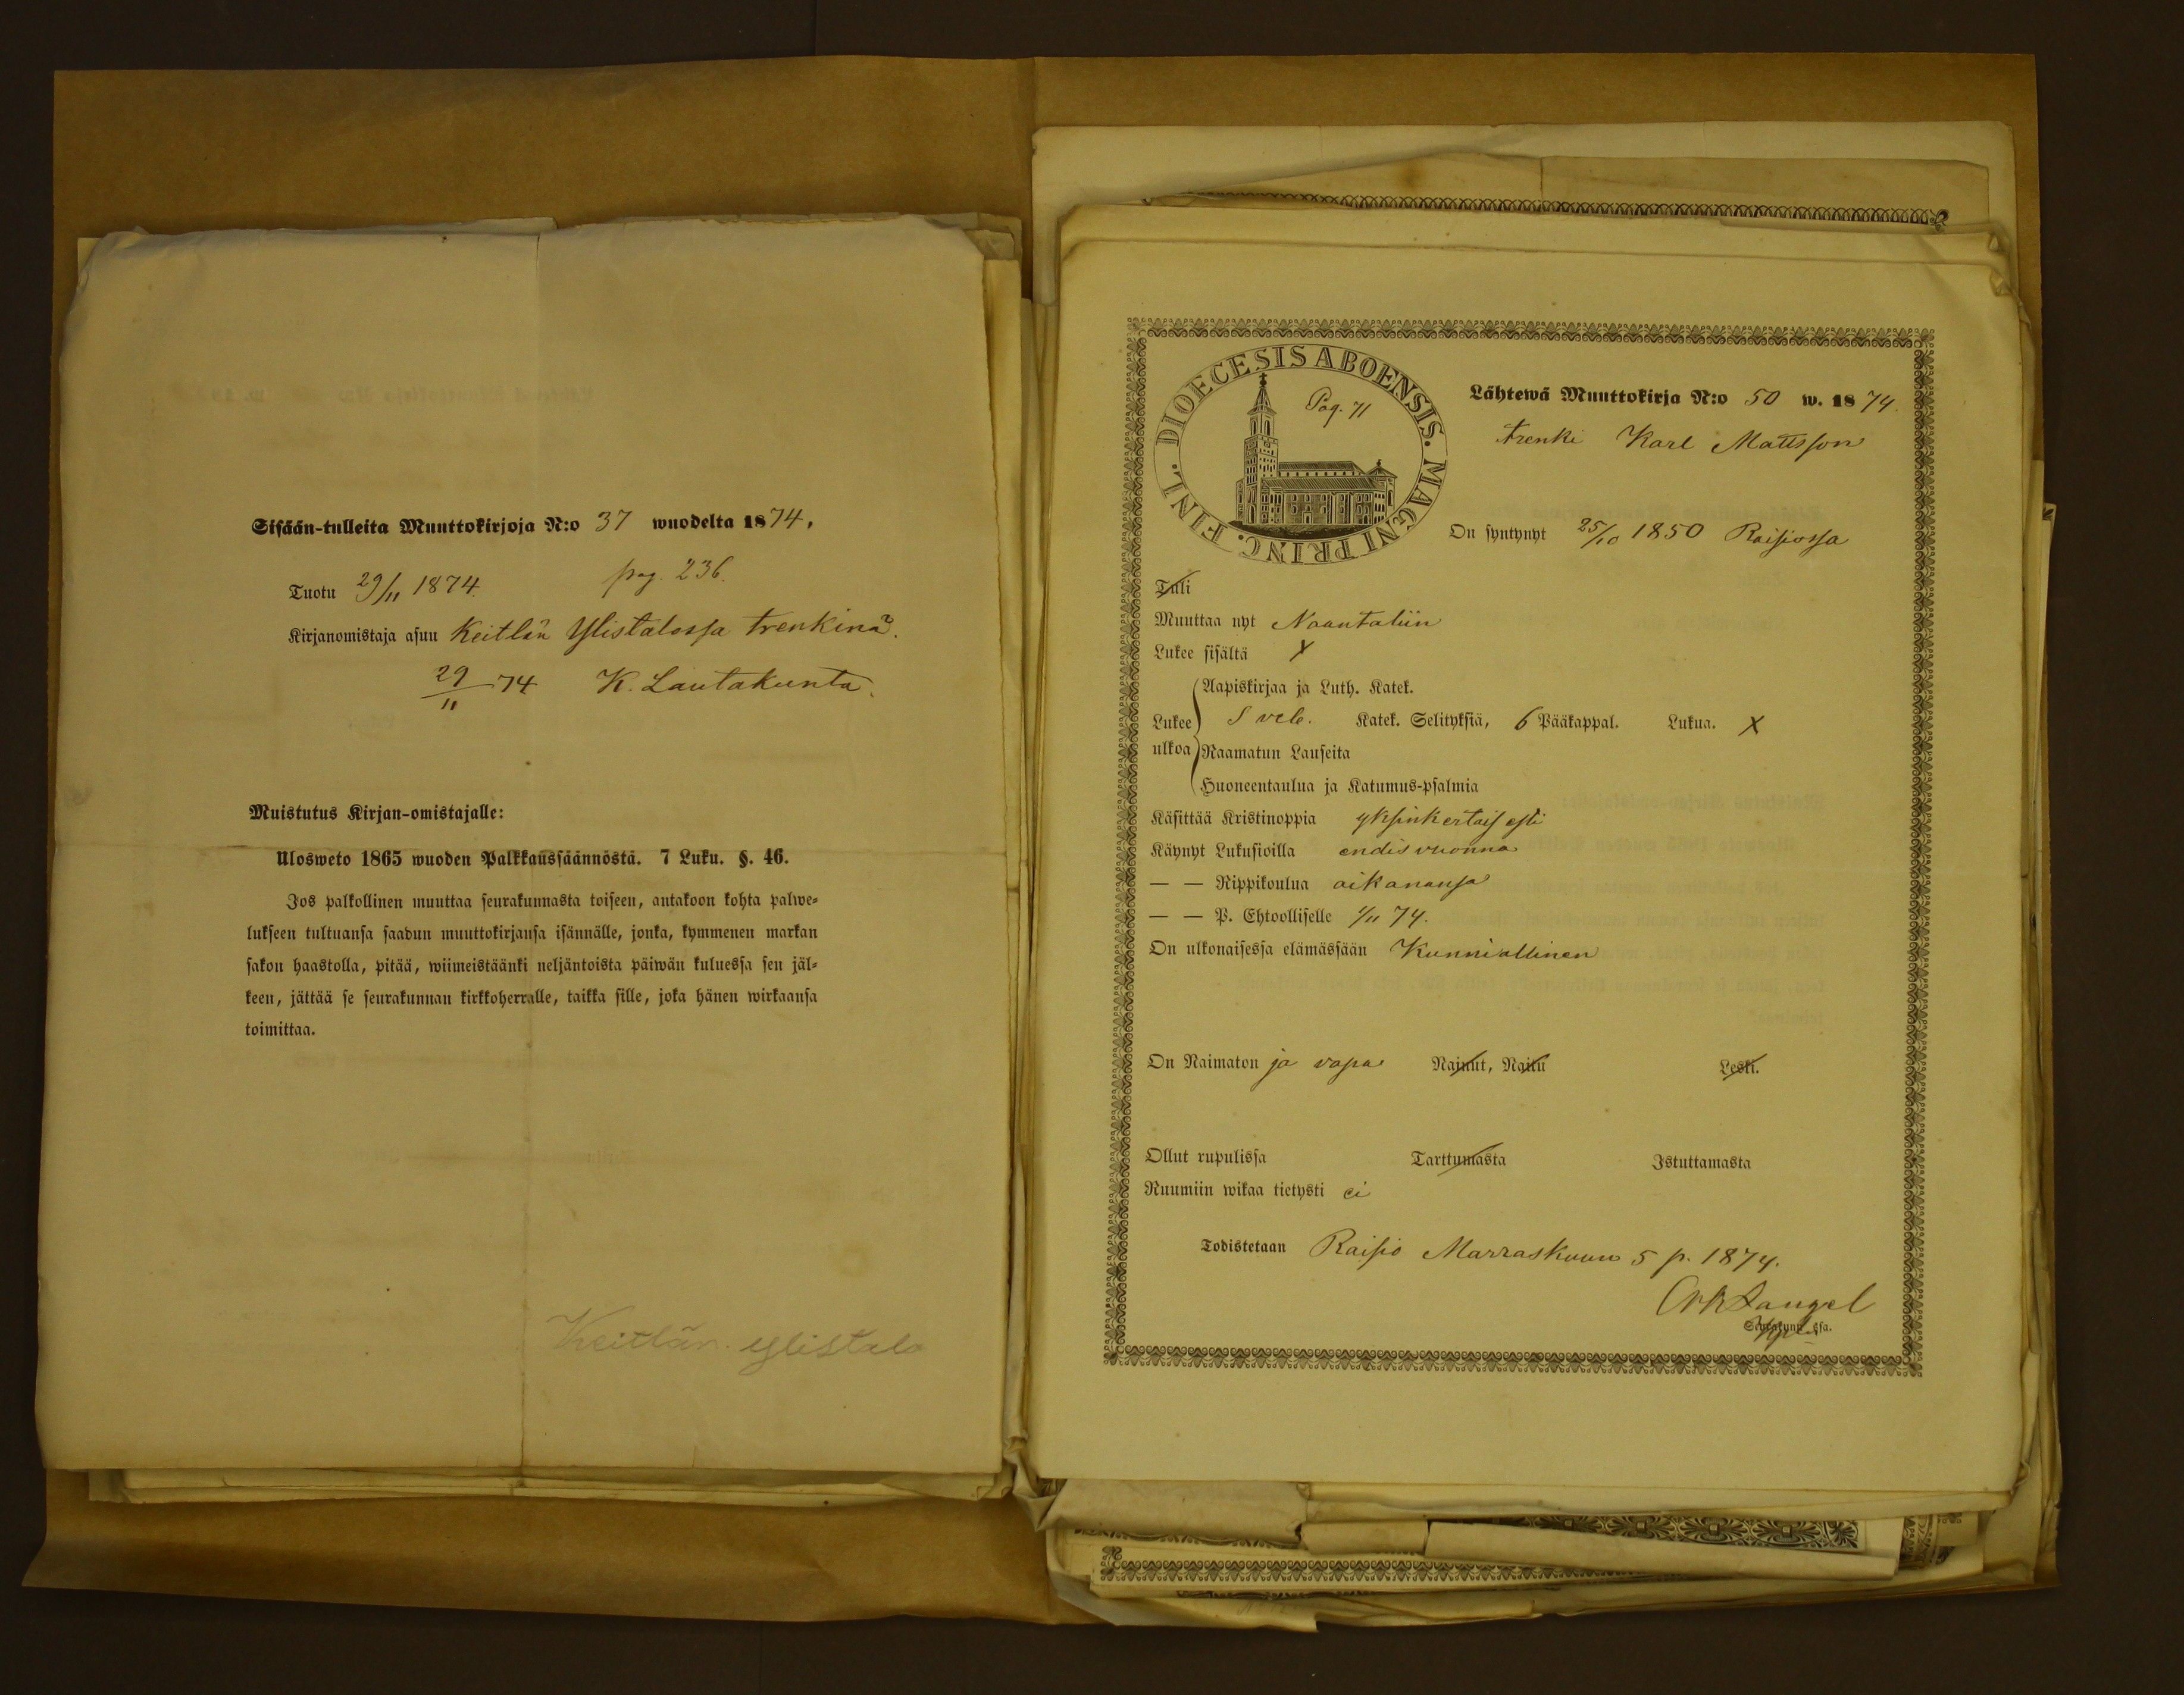 Sisään-tulleita Muuttokirjoja N:o 37 wuodelta 1874.
Tuotu 29/11 1874. pag. 236.
Kirjanomistaja asuu Keitlän Ylistalossa trenkinä.
29/11 74 K. Lautakunta.
Muistutus Kirjan-omistajalle:
Ulosweto 1865 wuoden Palkkaussäännöstä. 7 Luku. §. 46.
Jos palkollinen muuttaa seurakunnasta toiseen, antakoon kohta palwe-
lukseen tultuansa saadun muuttokirjansa isännälle, jonka, kymmenen markan
sakon haastolla, pitää, wiimeistäänki neljäntoista päiwän kuluessa sen jäl-
keen, jättää se seurakunnan kirkkoherralle, taikka sille, joka hänen wirkaansa
toimittaa.
Keitlän Ylistalo
FINL. DIOECESIS ABOENSIS. MAGNI PRINC.
Pag. 71
Lähtewä Muuttokirja N:o 50 w. 1874.
trenki Karl Mattsson
On syntynyt 25/10 1850 Raisiossa
Tuli
Muuttaa nyt Naantaliin
Lukee sisältä X
Lukee ulkoa
Aapiskirjaa ja Luth. Katek.
Katek. Selityksiä, 6 Pääkappal. Lukua. X
Raamatun Lauseita
Huoneentaulua ja Katumus-psalmia
Käsittää Kristinoppia yksinkertaisesti
Käynyt Lukusioilla endis vuonna
— — Rippikoulua aikanansa
— — P. Ehtoolliselle 1/11 74.
On ulkonaisessa elämässään Kunniallinen
On Naimaton ja vapa Nainut, Naitu Leski.
Ollut rupulissa Tarttumasta Istuttamasta
Ruumiin wikaa tietysti ei
Todistetaan Raisio Marraskuun 5 p. 1874.